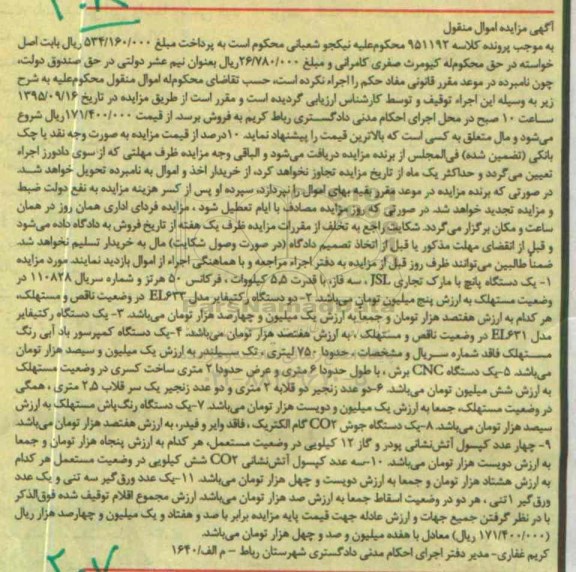 آگهی مزایده اموال منقول
به موجب پرونده کلاسه ۹۵۱۱۹۲ محکوم‌علیه نیکجو شعبانی محکوم است به پرداخت مبلغ ۵۳۴/۱۶۰/۰۰۰ ریال بابت اصل
خواسته در حق محکوم‌له کیومرث صفری کامرانی و مبلغ ۲۶/۷۸۰/۰۰۰ریال بعنوان نیم عشر دولتی در حق صندوق دولت،
چون نامبرده در موعد مقرر قانونی مفاد حکم را اجراء نکرده است، حسب تقاضای محکوم‌له اموال منقول محکوم‌علیه به شرح
زیر به وسیله این اجراء توقیف و توسط کارشناس ارزیابی گردیده است و مقرر است از طریق مزایده در تاریخ ۱۳۹۵/۰۹/۱۶
ساعت ۱۰ صبح در محل اجرای احکام مدنی دادگستری رباط کریم به فروش برسد. از قیمت ۱۷۱/۴۰۰/۰۰۰ریال شروع
می‌شود و مال متعلق به کسی است که بالاترین قیمت را پیشنهاد نماید. ۱۰درصد از قیمت مزایده به صورت وجه نقد یا چک
بانکی (تضمین شده) فی‌المجلس از برنده مزایده دریافت می‌شود و الباقی وجه مزایده ظرف مهلتی که از سوی دادورز اجراء
تعیین می‌گردد و حداکثر یک ماه از تاریخ مزایده تجاوز نخواهد کرد، از خریدار اخذ و اموال به نامبرده تحویل خواهد شد.
در صورتی که برنده مزایده در موعد مقرر بقیه بهای اموال را نپردازد، سپرده او پس از کسر هزینه مزایده به نفع دولت ضبط
و مزایده تجدید خواهد شد. در صورتی که روز مزایده مصادف با ایام تعطیل شود ، مزایده فردای اداری همان روز در همان
ساعت و مکان برگزار می‌گردد. شکایت راجع به تخلف از مقررات مزایده ظرف یک هفته از تاریخ فروش به دادگاه داده می‌شود
و قبل از انقضای مهلت مذکور یا قبل از اتخاذ تصمیم دادگاه (در صورت وصول شکایت) مال به خریدار تسلیم نخواهد شد.
ضمناً طالبین می‌توانند ظرف روز قبل از مزایده به دفتر اجراء مراجعه و با هماهنگی اجراء از اموال بازدید نمایند. مورد مزایده
۱- یک دستگاه پانچ با مارک تجاری JSL ، سه فاز، با قدرت ۵٫۵ کیلووات ، فرکانس ۵۰ هرتز و شماره سریال ۱۱۰۸۲۸ در
وضعیت مستهلک به ارزش پنج میلیون تومان می‌باشد. ۲- دو دستگاه رکتیفایر مدل EL۶۳۳ در وضعیت ناقص و مستهلک،
هر کدام به ارزش هفتصد هزار تومان و جمعاً به ارزش یک میلیون و چهارصد هزار تومان می‌باشد. ۳- یک دستگاه رکتیفایر
مدل EL۶۳۱ در وضعیت ناقص و مستهلک ، به ارزش هفتصد هزار تومان می‌باشد. ۴-یک دستگاه کمپرسور باد آبی رنگ
مستهلک فاقد شماره سریال و مشخصات ، حدودا ۷۵۰ لیتری ، تک سیلندر به ارزش یک میلیون و سیصد هزار تومان
می‌باشد. ۵-یک دستگاه CNC برش ، با طول حدودا ۶ متری و عرض حدودا ۲ متری ساخت کسری در وضعیت مستهلک
به ارزش شش میلیون تومان می‌باشد. ۶-دو عدد زنجیر دو قلابه ۲ متری و دو عدد زنجیر یک سر قلاب ۲٫۵ متری ، همگی
در وضعیت مستهلک، جمعا به ارزش یک میلیون و دویست هزار تومان می‌باشد. ۷-یک دستگاه رنگ‌پاش مستهلک به ارزش
سیصد هزار تومان می‌باشد. ۸-یک دستگاه جوش CO۲ گام الکتریک ، فاقد وایر و فیدر، به ارزش هفتصد هزار تومان می‌باشد.
۹- چهار عدد کپسول آتش‌نشانی پودر و گاز ۱۲ کیلویی در وضعیت مستعمل، هر کدام به ارزش پنجاه هزار تومان و جمعا
به ارزش دویست هزار تومان می‌باشد. ۱۰-سه عدد کپسول آتش‌نشانی CO۲ شش کیلویی در وضعیت مستعمل هر کدام
به ارزش هشتاد هزار تومان و جمعا به ارزش دویست و چهل هزار تومان می‌باشد. ۱۱-یک عدد ورق‌گیر سه تنی و یک عدد
ورق‌گیر ۱تنی ، هر دو در وضعیت اسقاط جمعا به ارزش صد هزار تومان می‌باشد. ارزش مجموع اقلام توقیف شده فوق‌الذکر
با در نظر گرفتن جمیع جهات و ارزش عادله جهت قیمت پایه مزایده برابر با صد و هفتاد و یک میلیون و چهارصد هزار ریال
(۱۷۱/۴۰۰/۰۰۰ ریال) معادل با هفده میلیون و صد و چهل هزار تومان می‌باشد.
کریم غفاری- مدیر دفتر اجرای احکام مدنی دادگستری شهرستان رباط - م الف/۱۶۴۰